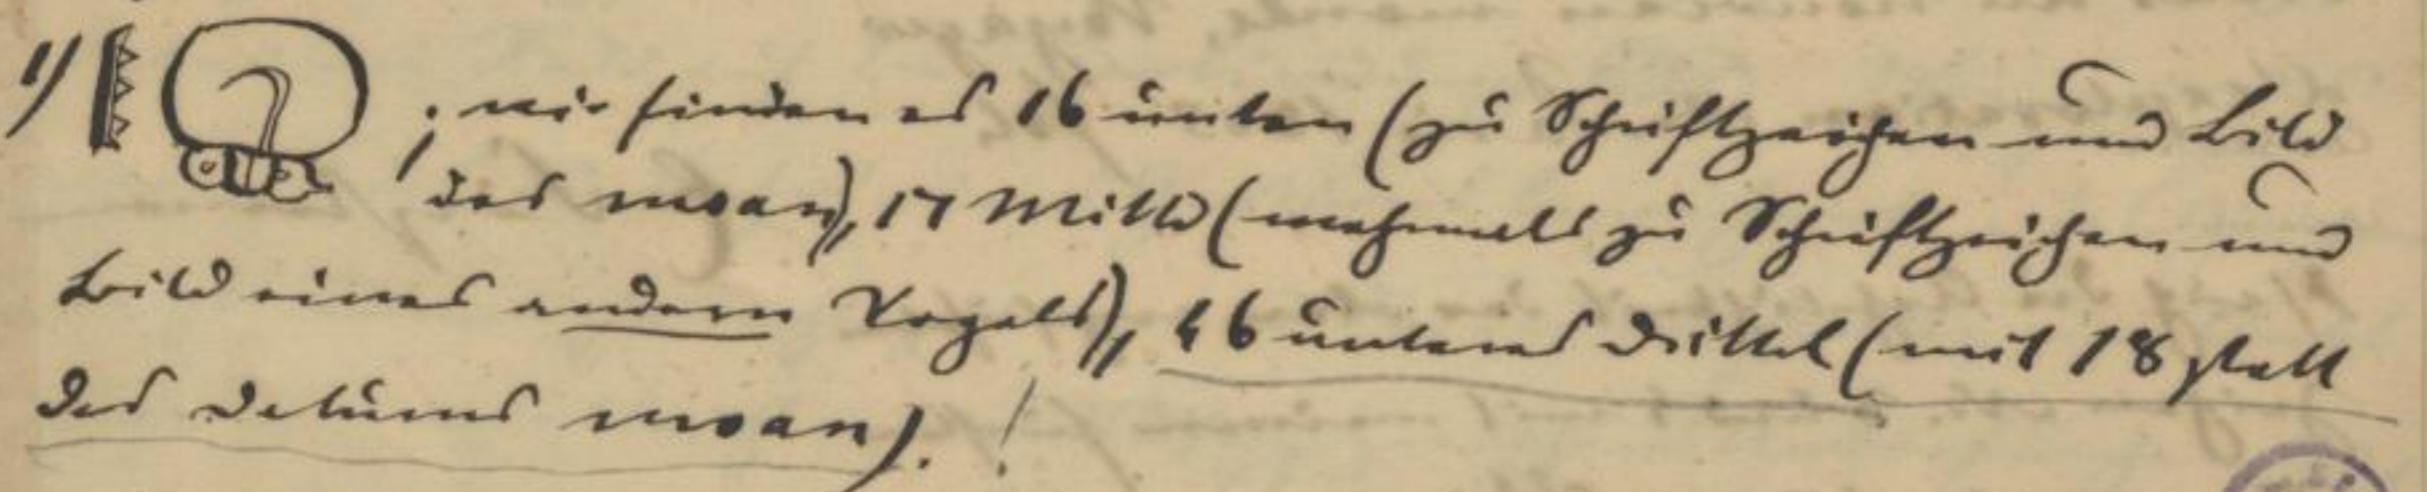 1/ ; wir finden es 16 unten (zu Schriftzeichen und Bild
des moan), 17 Mitte (mehrmals zu Schriftzeichen und
Bild eines andern Vogels), 46 unteres Drittel (mit 18 statt
des Datums moan). !